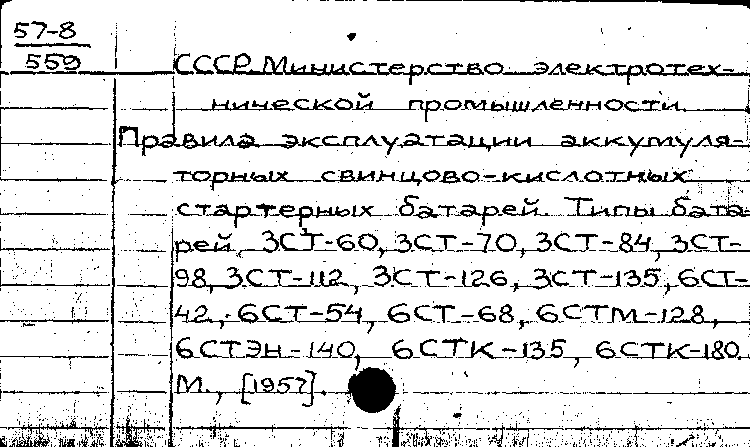 57-8
559
СССР. Министерство электротех-
нической промышленности.
Правила эксплуатации аккумуля-
торных свинцово-кислотных
стартерных батарей. Типы бата-
рей, 3СТ-60, 3СТ-70, 3СТ-84, 3СТ-
98, 3СТ-112, 3СТ-126, 3СТ-135, 6СТ-
42, 6СТ-54, 6СТ-68, 6СТМ-128,
6СТЭН-140, 6СТК-135, 6СТК-180.
М., [1957].